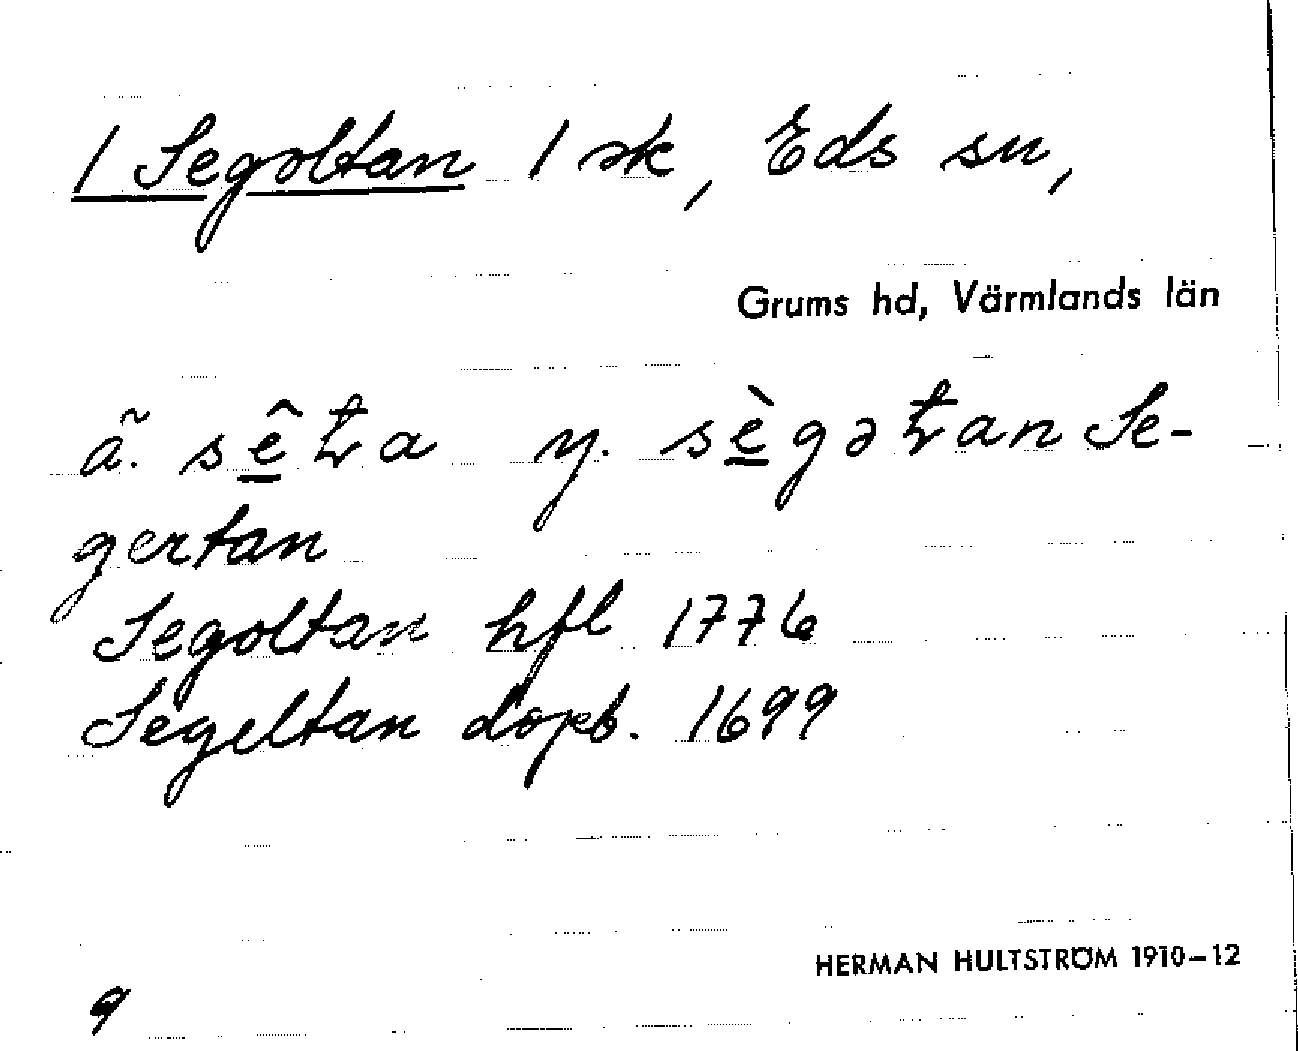 / Segoltan / sk, Eds sn,
Grums hd, Värmlands län
ã. sê̱ťa y. sè̱gəťan Se-
gertan
Segoltan hfl 1776
Segeltan dopb. 1699
HERMAN HULTSTRÖM 1910–12
9